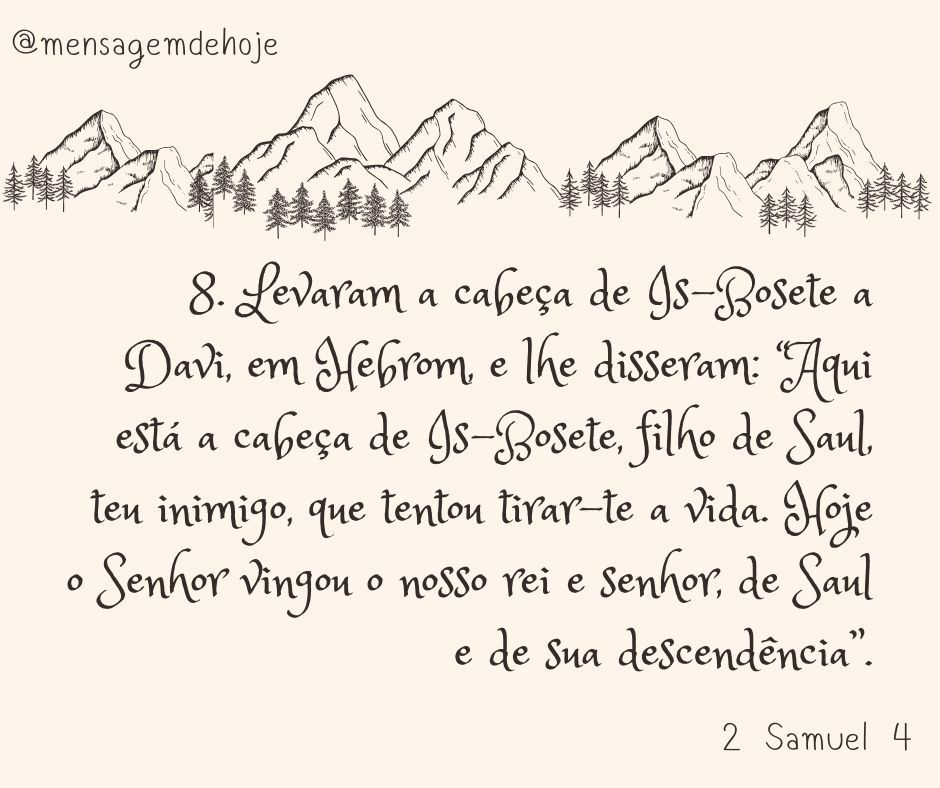 @mensagemdehoje
8. Levaram a cabeça de Is-Bosete a
Davi, em Hebrom, e lhe disseram: “Aqui
está a cabeça de Is-Bosete, filho de Saul,
teu inimigo, que tentou tirar-te a vida. Hoje
o Senhor vingou o nosso rei e senhor, de Saul
e de sua descendência”.
2 Samuel 4